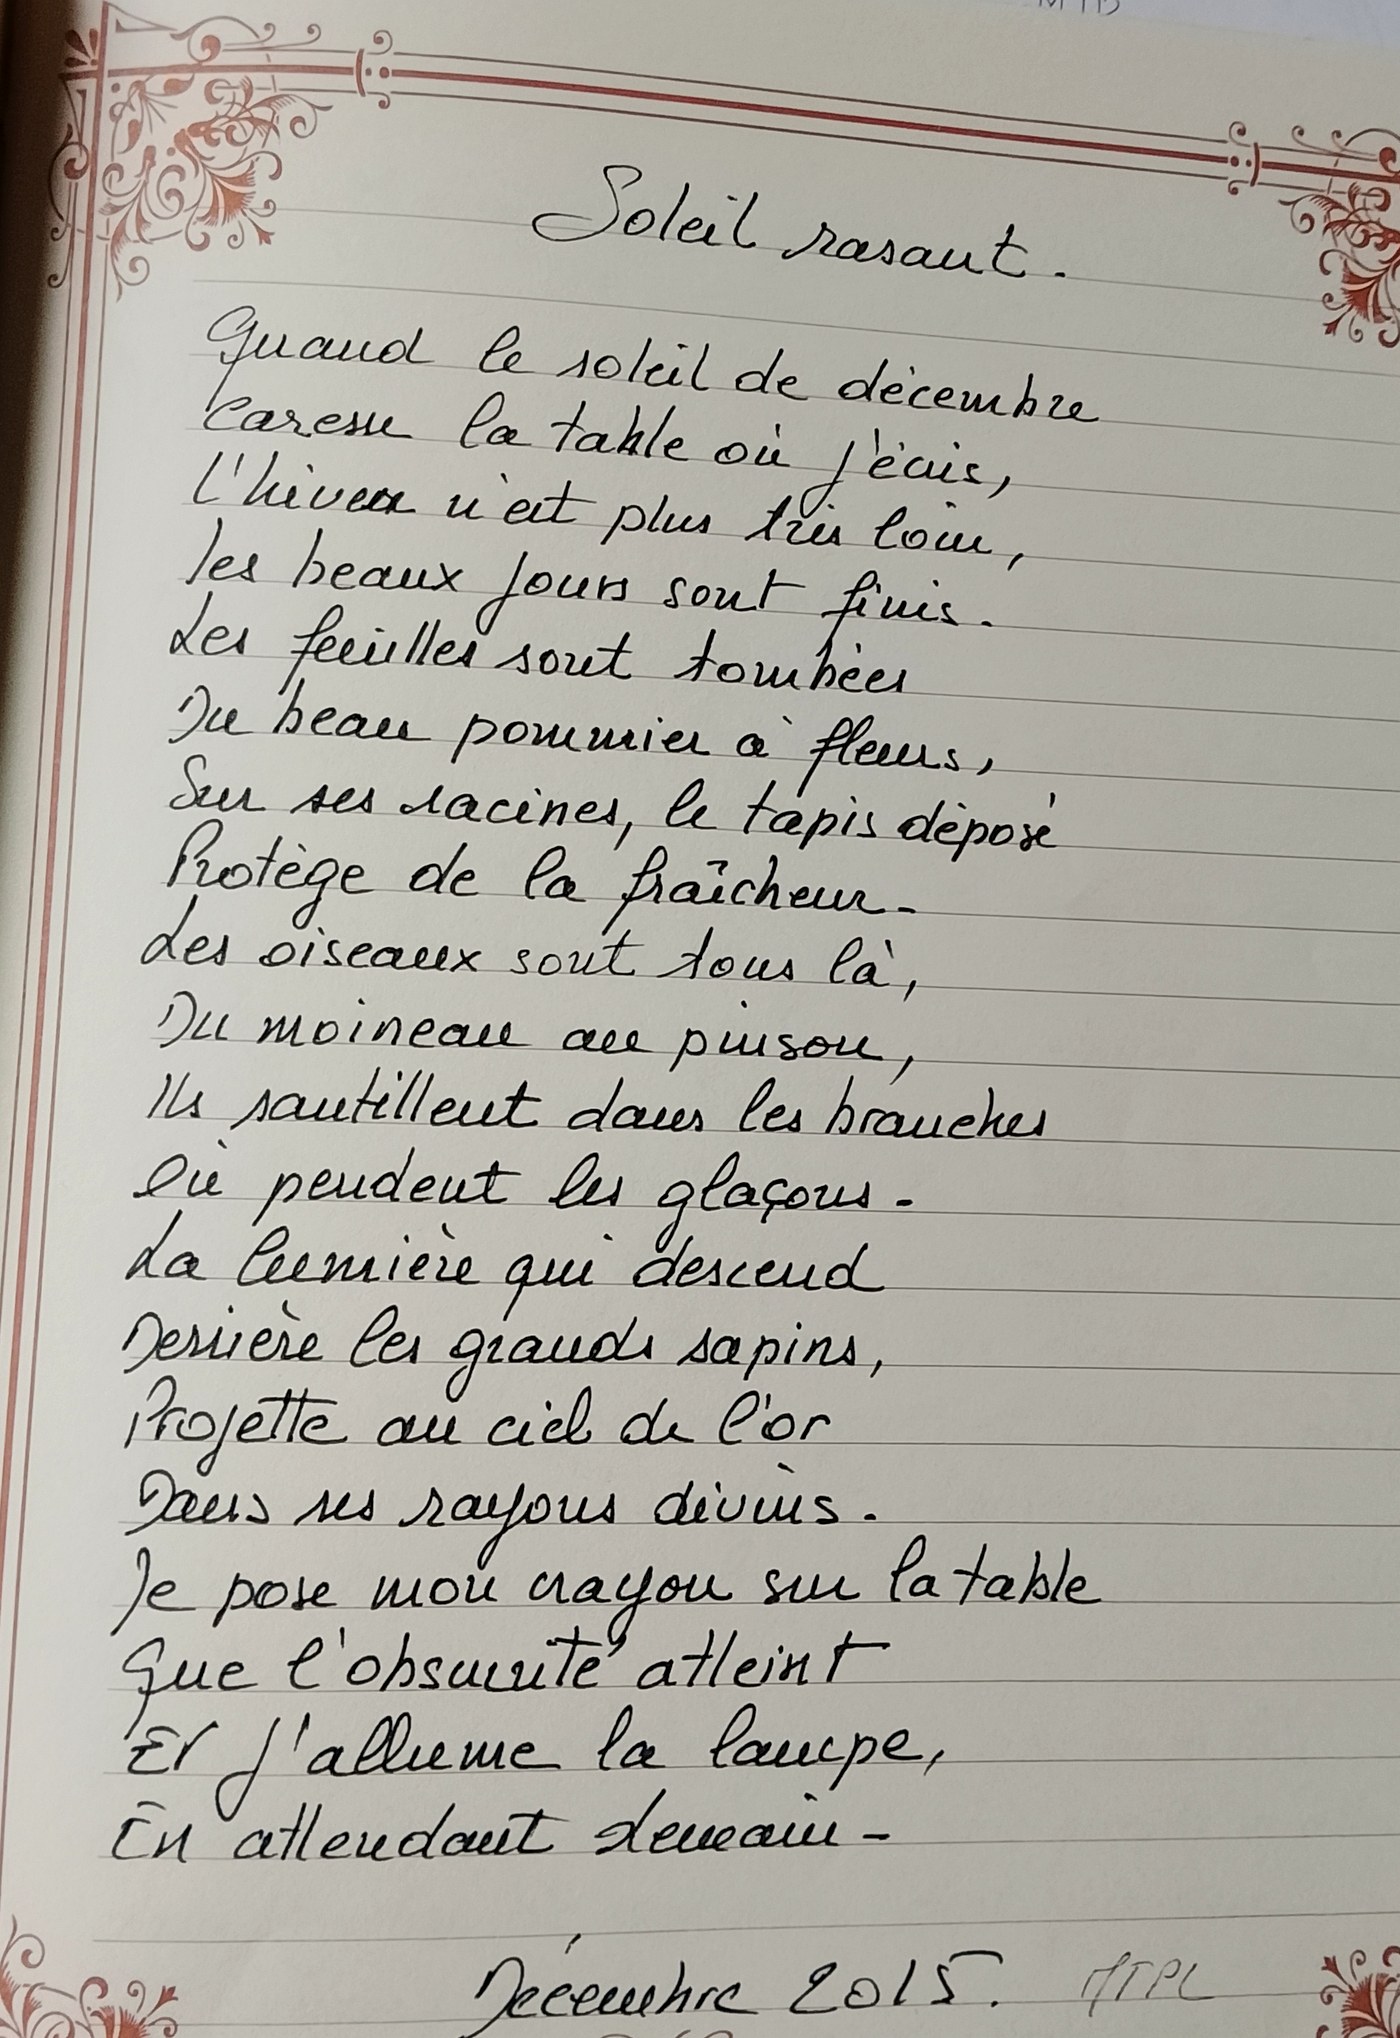 Soleil rasant.
Quand le soleil de décembre
Caresse la table où j'écris,
L'hiver n'est plus très loin,
les beaux jours sont finis.
Les feuilles sont tombées
Du beau pommier à fleurs,
Sur ses racines, le tapis déposé
Protège de la fraîcheur.
Les oiseaux sont tous là,
Du moineau au pinson,
Ils sautillent dans les branches
Où pendent les glaçons.
La lumière qui descend
Derrière les grands sapins,
Projette au ciel de l'or
Dans ses rayons divins.
Je pose mon crayon sur la table
Que l'obscurité atteint
Et j'allume la lampe,
En attendant demain.
Décembre 2015.